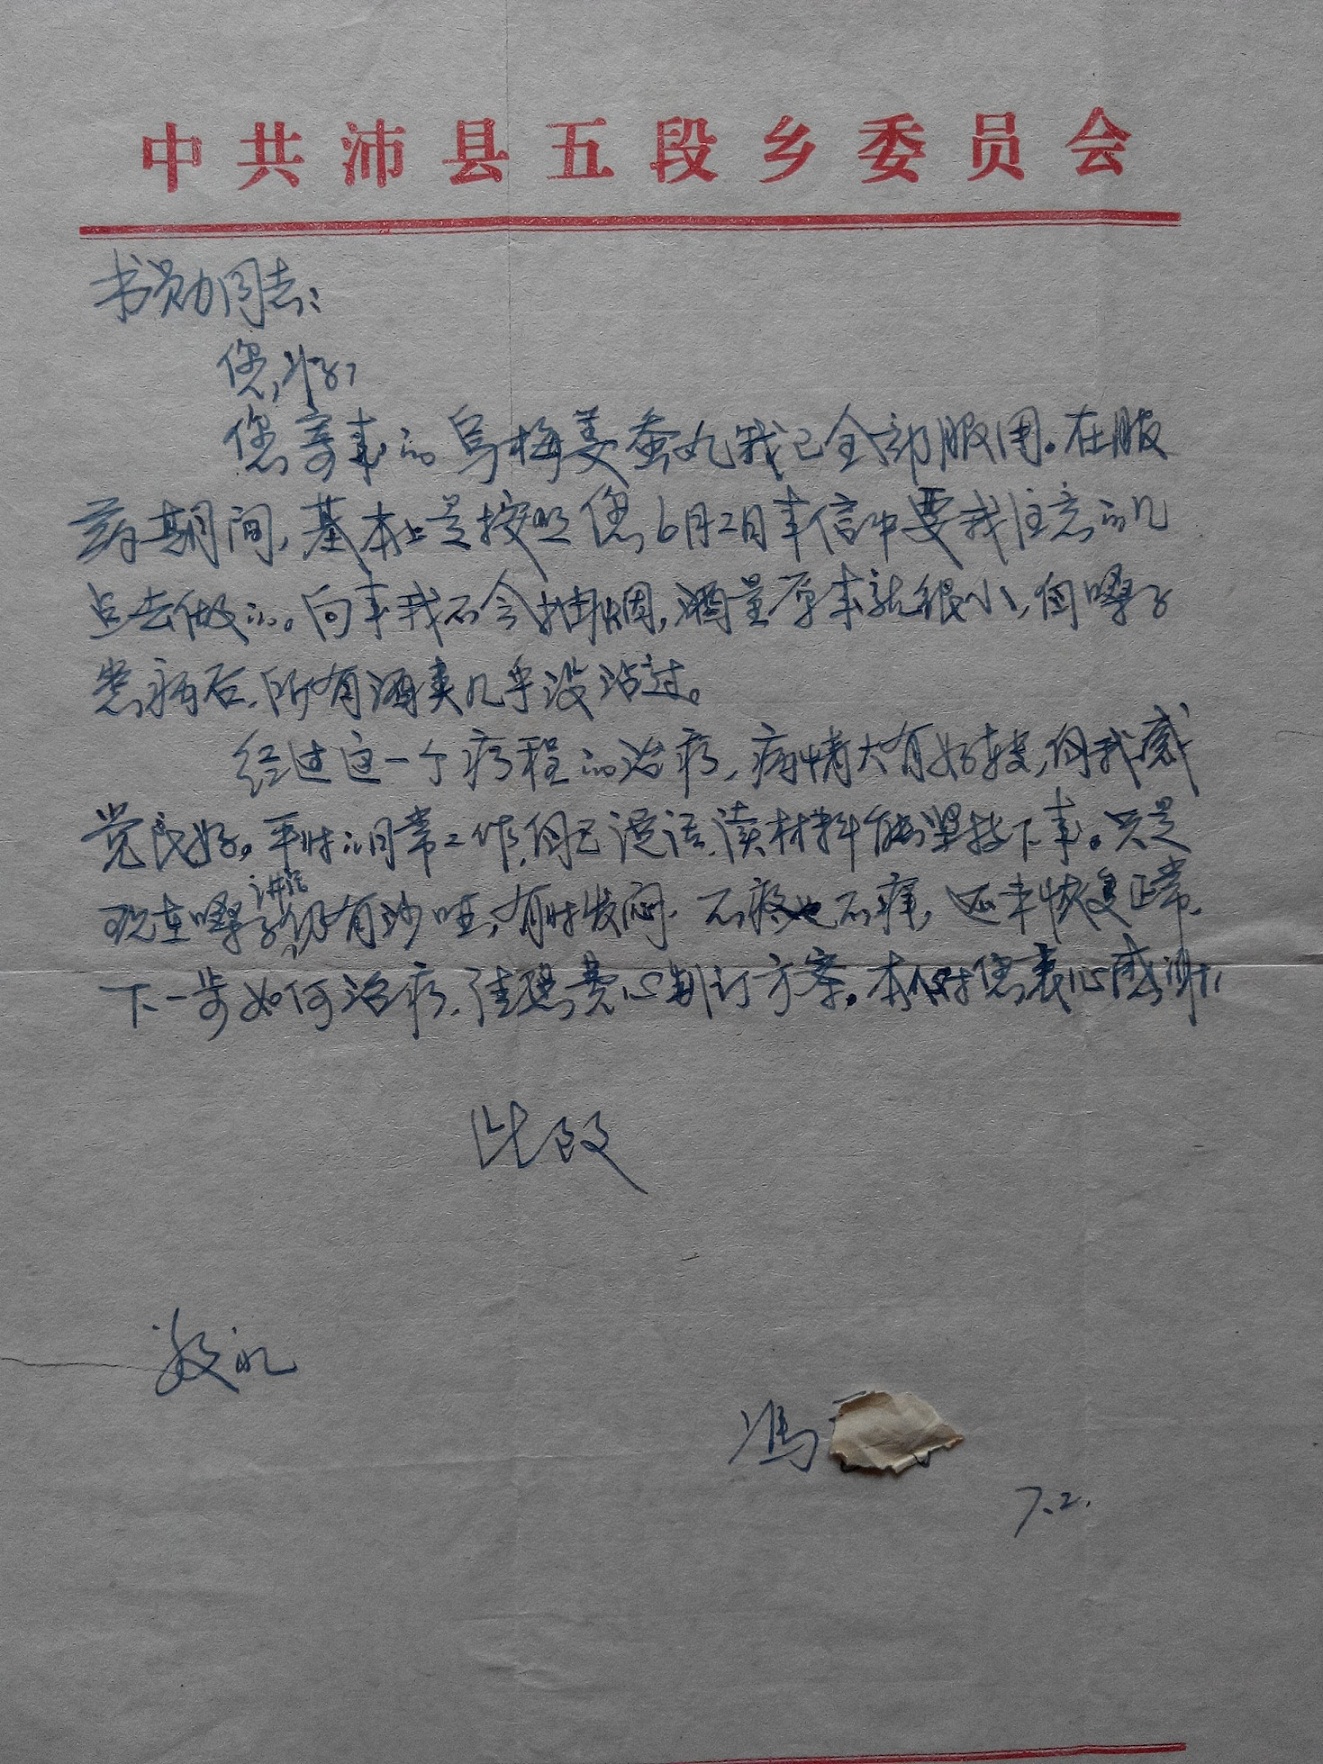 中共沛县五段乡委员会
书勋同志：
您好！
您寄来的乌梅姜蚕丸我已全部服用。在服
药期间，基本上是按照您6月2日来信中要我注意的几
点去做的。向来我不会抽烟，酒量原来就很小，自嗓子
患病后，所有酒类几乎没沾过。
经过这一个疗程的治疗，病情大有好转，自我感
觉良好。平时日常工作，自己说话、读材料能坚持下来。只是
现在嗓子讲话仍有沙哑，有时发闷，不疼也不痒，还未恢复正常。
下一步如何治疗，请您费心制订方案。本人对您衷心感谢！
此致
敬礼
冯
7.2.